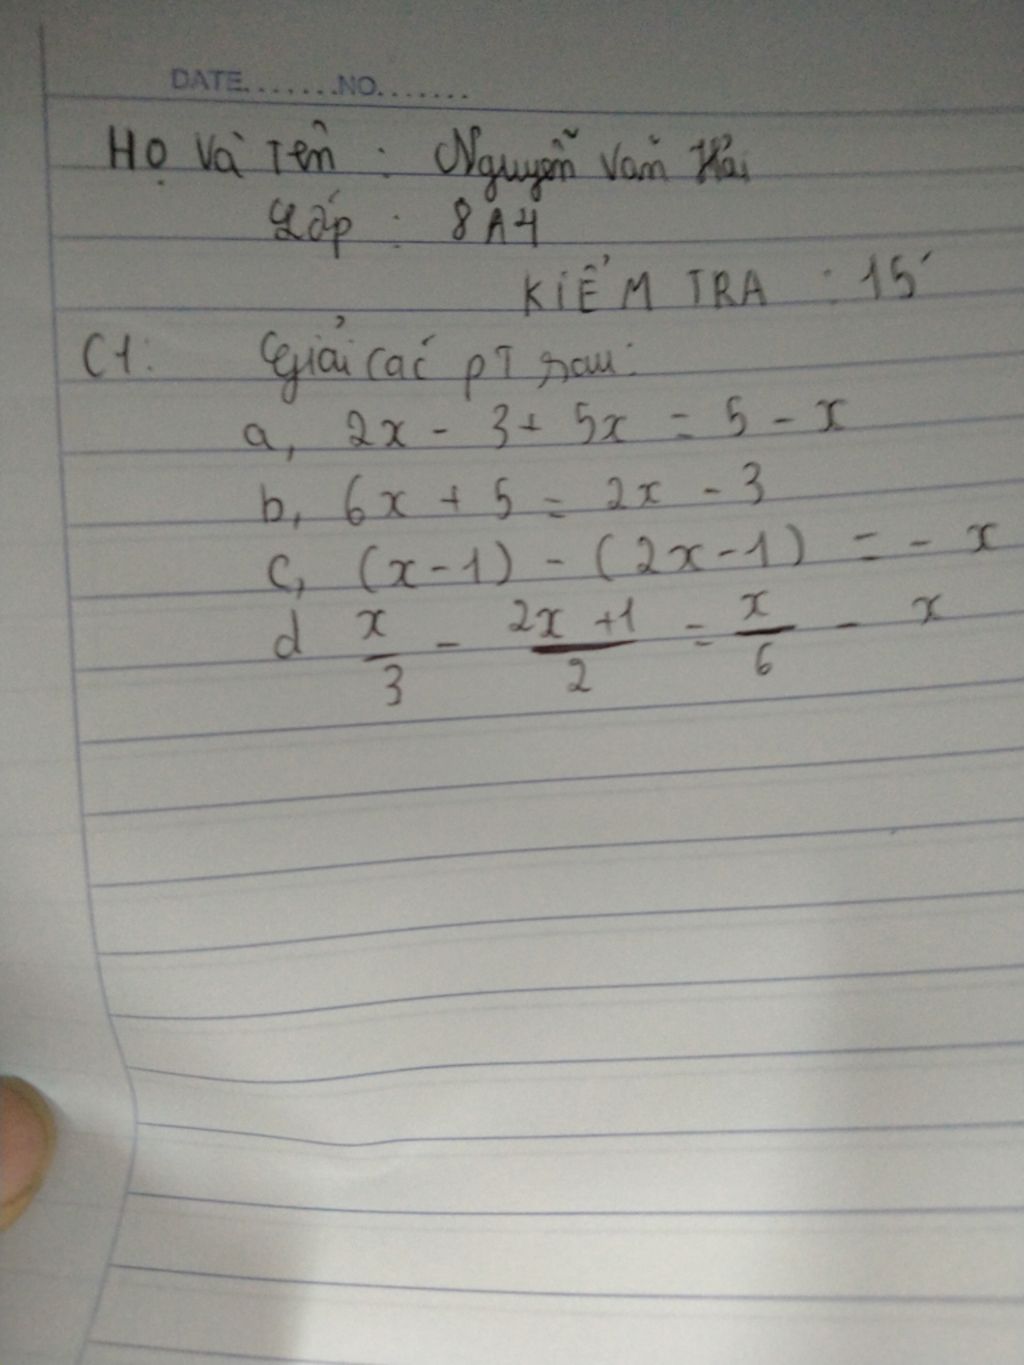 DATE........NO........
Họ Và Tên : Nguyễn Văn Hải
Lớp : 8A4
KIỂM TRA : 15'
C1: Giải các pT sau:
a, 2x - 3 + 5x = 5 - x
b, 6x + 5 = 2x - 3
c, (x-1) - (2x-1) = - x
d x/3 - (2x+1)/2 = x/6 - x